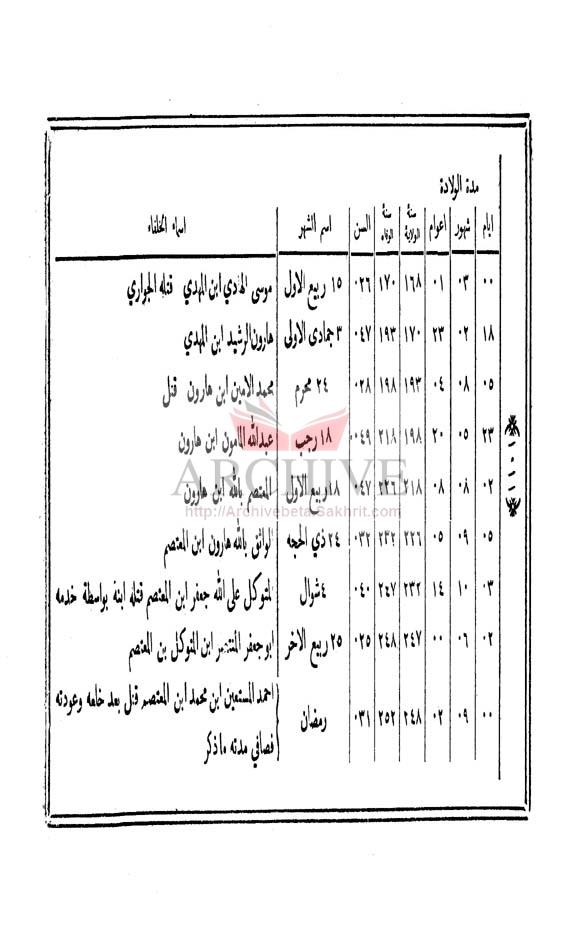 مدة الولادة
ايام | شهور | اعوام | سنة الولاية | سنة الوفاة | السن | اسم الشهر | اسماء الخلفاء
٠٠ | ٠٣ | ٠١ | ١٦٨ | ١٧٠ | ٠٢٦ | ١٥ ربيع الاول | موسى الهادي ابن المهدي قتله الجواري
١٨ | ٠٢ | ٢٣ | ١٧٠ | ١٩٣ | ٠٤٧ | ٣ جمادى الاولى | هارون الرشيد ابن المهدي
٠٥ | ٠٨ | ٠٤ | ١٩٣ | ١٩٨ | ٠٢٨ | ٢٤ محرم | محمد الامين ابن هارون قتل
٢٣ | ٠٥ | ٢٠ | ١٩٨ | ٢١٨ | ٠٤٩ | ١٨ رجب | عبدالله المامون ابن هارون
٠٢ | ٠٨ | ٠٨ | ٢١٨ | ٢٢٦ | ٠٤٧ | ١٨ ربيع الاول | المعتصم بالله ابن هارون
٠٥ | ٠٩ | ٠٥ | ٢٢٦ | ٢٣٢ | ٠٣٢ | ٢٤ ذي الحجه | الواثق بالله هارون ابن المعتصم
٠٣ | ١٠ | ١٤ | ٢٣٢ | ٢٤٧ | ٠٤٠ | ٤ شوال | المتوكل على الله جعفر ابن المعتصم قتله ابنه بواسطة خدمه
٠٢ | ٠٦ | ٠٠ | ٢٤٧ | ٢٤٨ | ٠٢٥ | ٢٥ ربيع الاخر | ابو جعفر المنتصر ابن المتوكل بن المعتصم
٠٠ | ٠٩ | ٠٢ | ٢٤٨ | ٢٥٢ | ٠٣١ | رمضان | احمد المستعين ابن محمد ابن المعتصم قتل بعد خلعه وعودته
فصافي مدته ما ذكر
ARCHIVE
http://Archivebeta.Sakhrit.com